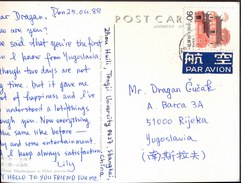 Dear Dragan, 29.04.88
How are you?
said what you're the first
I know from Yugoslavia.
though two days are not
long time. But it gave me
of happiness and I've
understood a lot of things
through you. Now everything
the same like before —
and some entertainment.
I keep always satisfaction
Lily
HELLO TO YOU FRIEND FOR ME.
Zhou Huili, Tongji University Shanghai
China
POSTCARD
50
中国人民邮政
航空
PAR AVION
Mr. Dragan Čučak
A. Barca 3A
51000 Rijeka
Yugoslavia
(南斯拉夫)